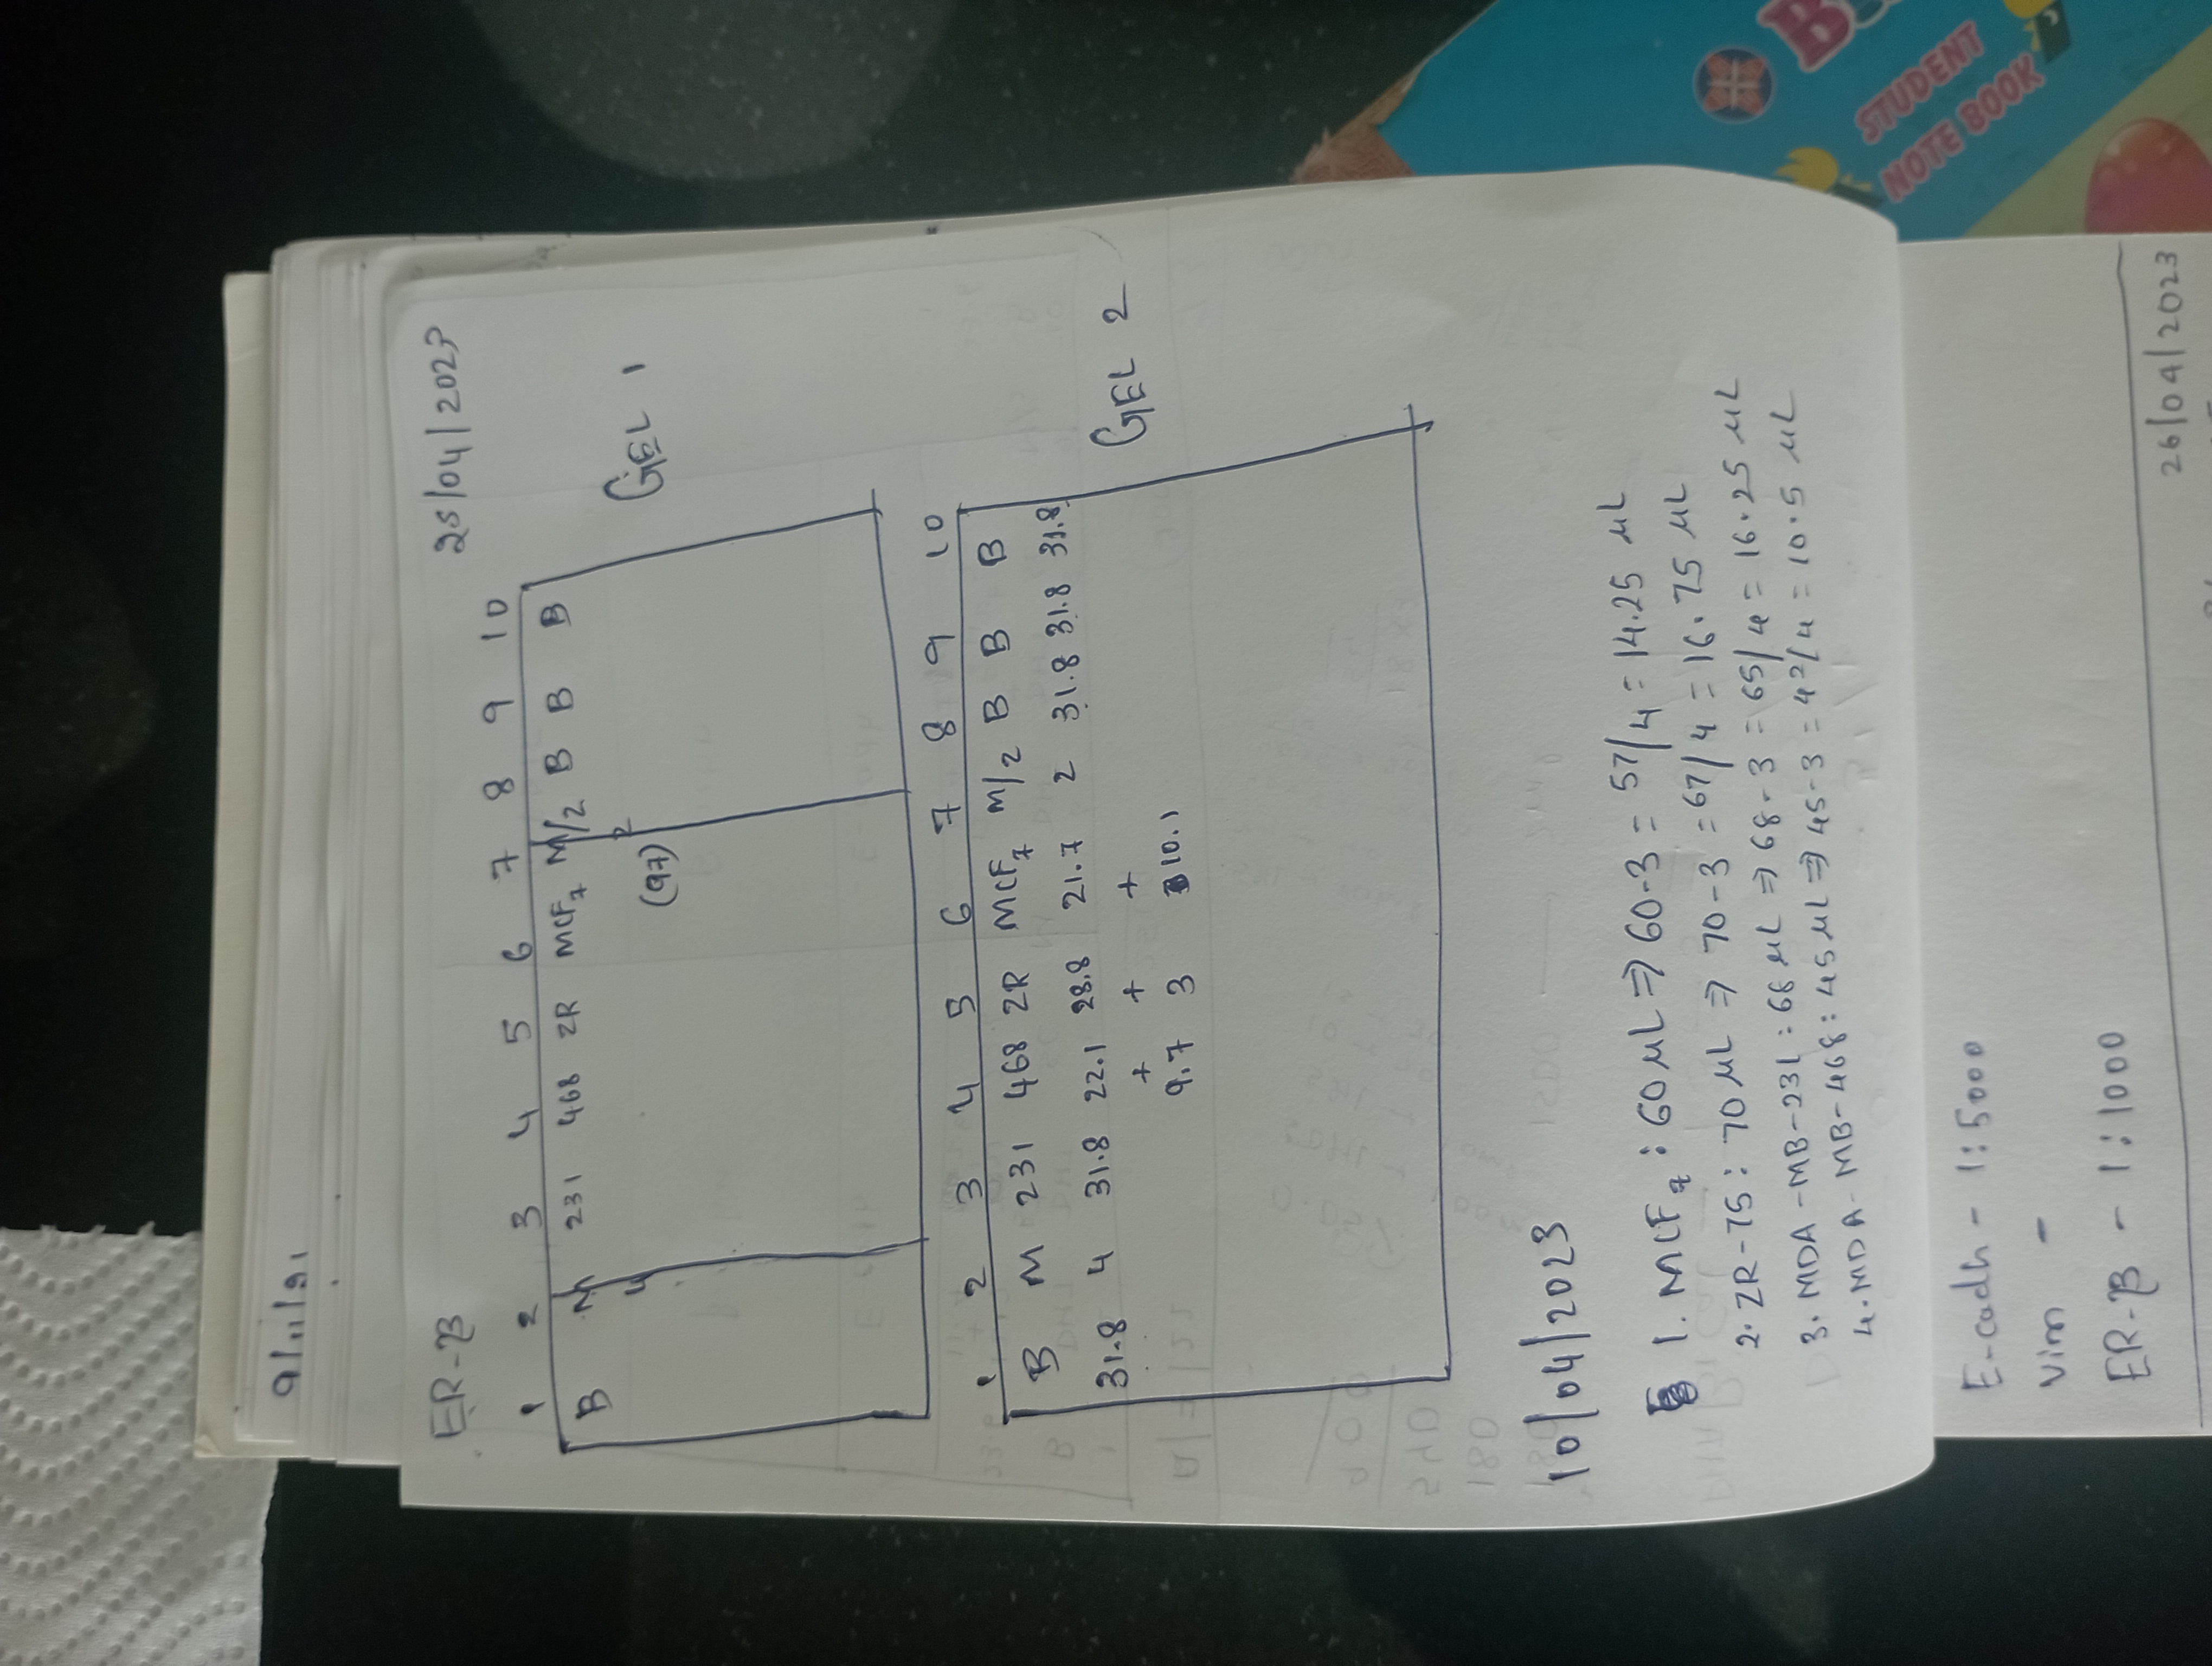 9/11/21
ER-β 25/04/2023
1 2 3 4 5 6 7 8 9 10
B M 231 468 ZR MCF7 M/2 B B B
4 2
(97)
GEL 1
1 2 3 4 5 6 7 8 9 10
B M 231 468 ZR MCF7 M/2 B B B
31.8 4 31.8 22.1 28.8 21.7 2 31.8 31.8 31.8
+ + +
9.7 3 10.1
GEL 2
10/04/2023
1. MCF7 : 60 μL ⇒ 60-3 = 57/4 = 14.25 μL
2. ZR-75 : 70 μL ⇒ 70-3 = 67/4 = 16.75 μL
3. MDA-MB-231 : 68 μL ⇒ 68-3 = 65/4 = 16.25 μL
4. MDA-MB-468 : 45 μL ⇒ 45-3 = 42/4 = 10.5 μL
E-cadh - 1:5000
Vim -
ER-β - 1:1000
26/04/2023
STUDENT
NOTE BOOK